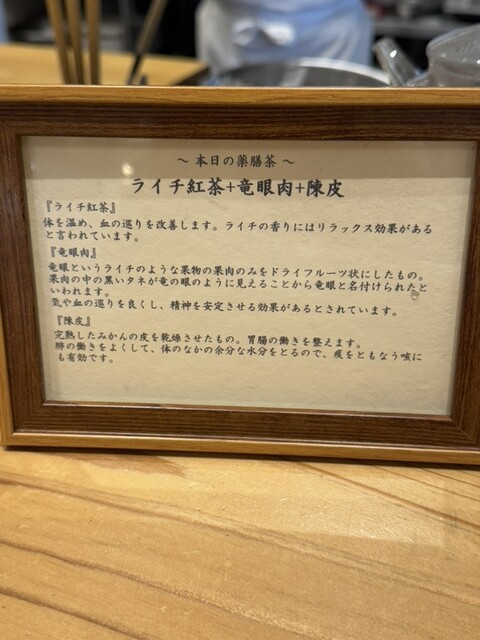 ～ 本日の薬膳茶 ～
ライチ紅茶+竜眼肉+陳皮
『ライチ紅茶』
体を温め、血の巡りを改善します。ライチの香りにはリラックス効果がある
と言われています。
『竜眼肉』
竜眼というライチのような果物の果肉のみをドライフルーツ状にしたもの。
果肉の中の黒いタネが竜の眼のように見えることから竜眼と名付けられたと
いわれます。
気や血の巡りを良くし、精神を安定させる効果があるとされています。
『陳皮』
完熟したみかんの皮を乾燥させたもの。胃腸の働きを整えます。
肺の働きをよくして、体のなかの余分な水分をとるので、痰をともなう咳に
も有効です。